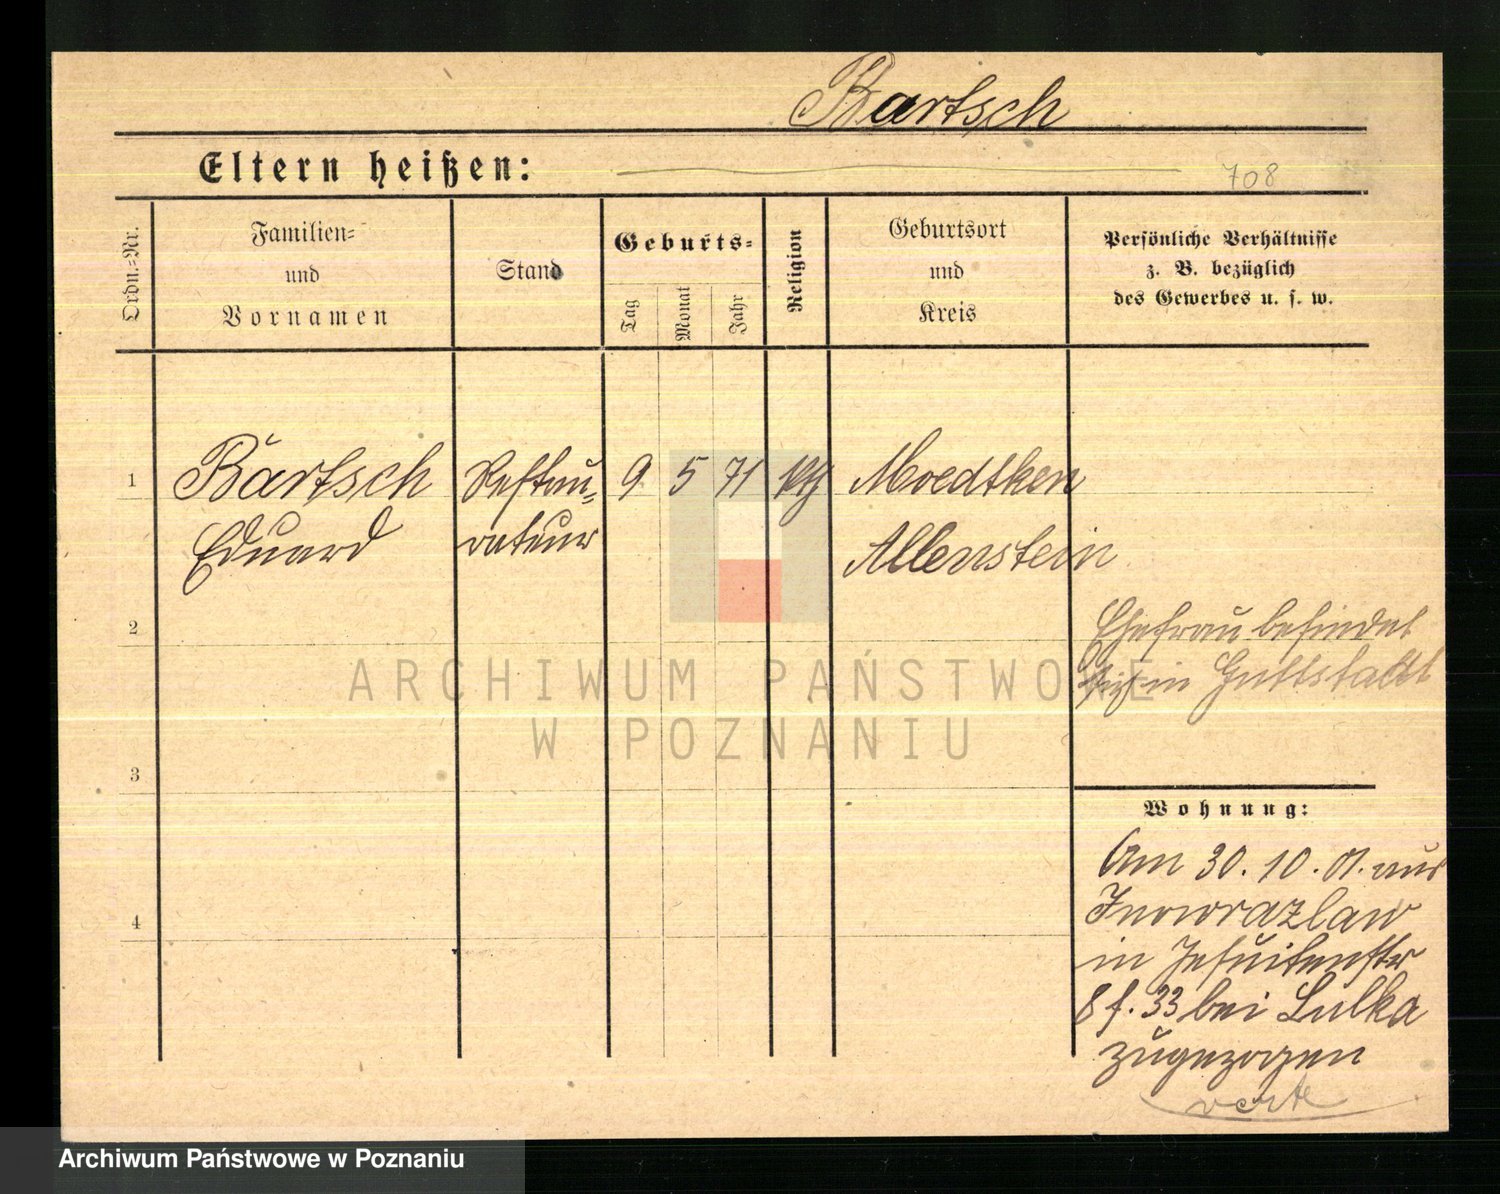 Bartsch
Eltern heißen:
708
Ordn.-Nr.
Familien-
und
Vornamen
Stand
Geburts-
Tag
Monat
Jahr
Religion
Geburtsort
und
Kreis
Persönliche Verhältnisse
z. B. bezüglich
des Gewerbes u. s. w.
1 Bartsch Restau- 9 5 71 kth Moedtken
Eduard rateur Allenstein
2 Ehefrau befindet
sich in Guttstadt
ARCHIWUM PAŃSTWOWE
W POZNANIU
3
Wohnung:
Am 30.10.01. aus
Inowrazlaw
4
in Jesuitenstr
8 f. 33 bei Lulka
zugezogen
verte
Archiwum Państwowe w Poznaniu